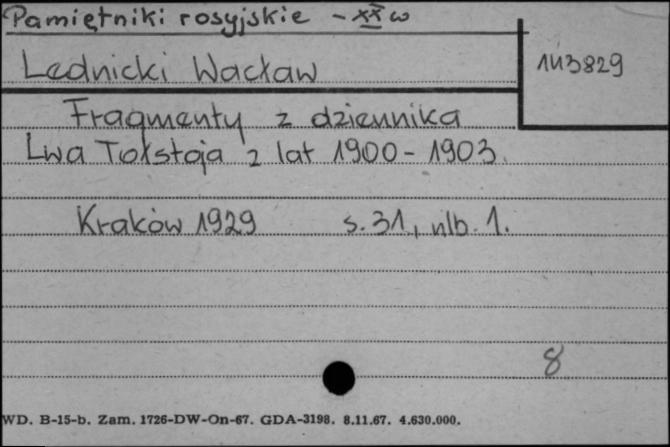 Pamiętniki rosyjskie - XX w
Lednicki Wacław
143829
Fragmenty z dziennika
Lwa Tołstoja z lat 1900-1903.
Kraków 1929 s. 31, nlb. 1.
8
WD. B-15-b. Zam. 1726-DW-On-67. GDA-3198. 8.11.67. 4.630.000.